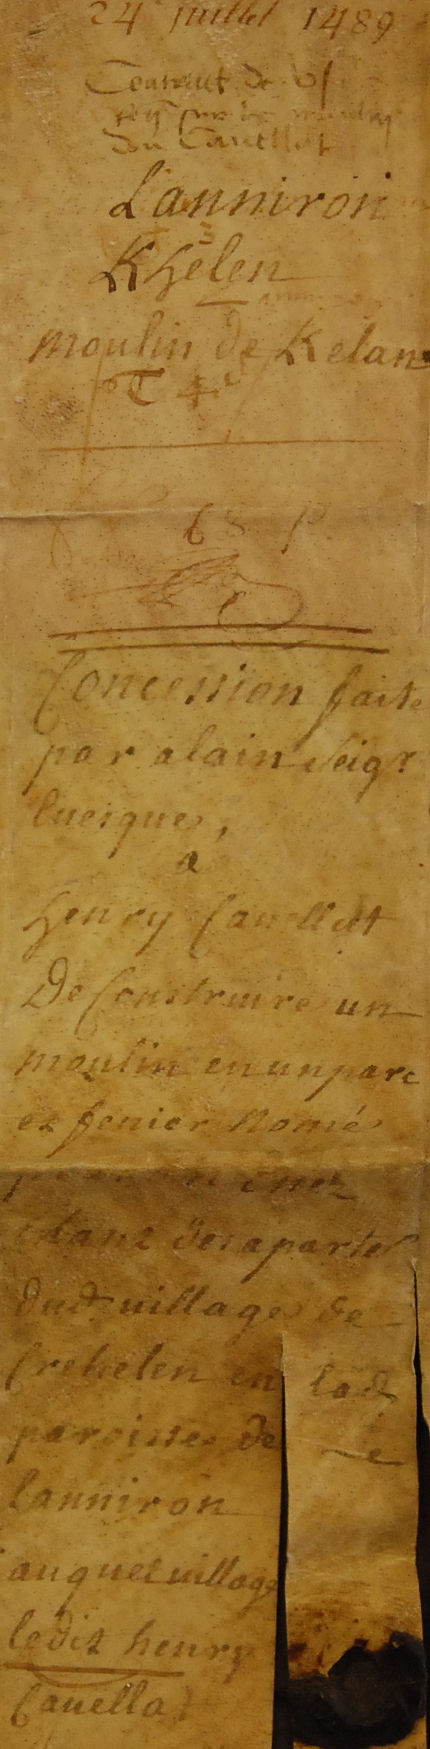 24 juillet 1489
Couneut de
sur le moulin
du Cauellat
Lanniron
Khelen
moulin de Kelan
68 P
Concession faite
par alain Seigr
Euesque,
a
henry Cauellat
De Construire un
moulin en un parc
et fenier Nomé
estant des aparte
dud. uillage de
Crehelen en lad
paroisse de
Lanniron
auquel uillage
ledit henry
Cauellat